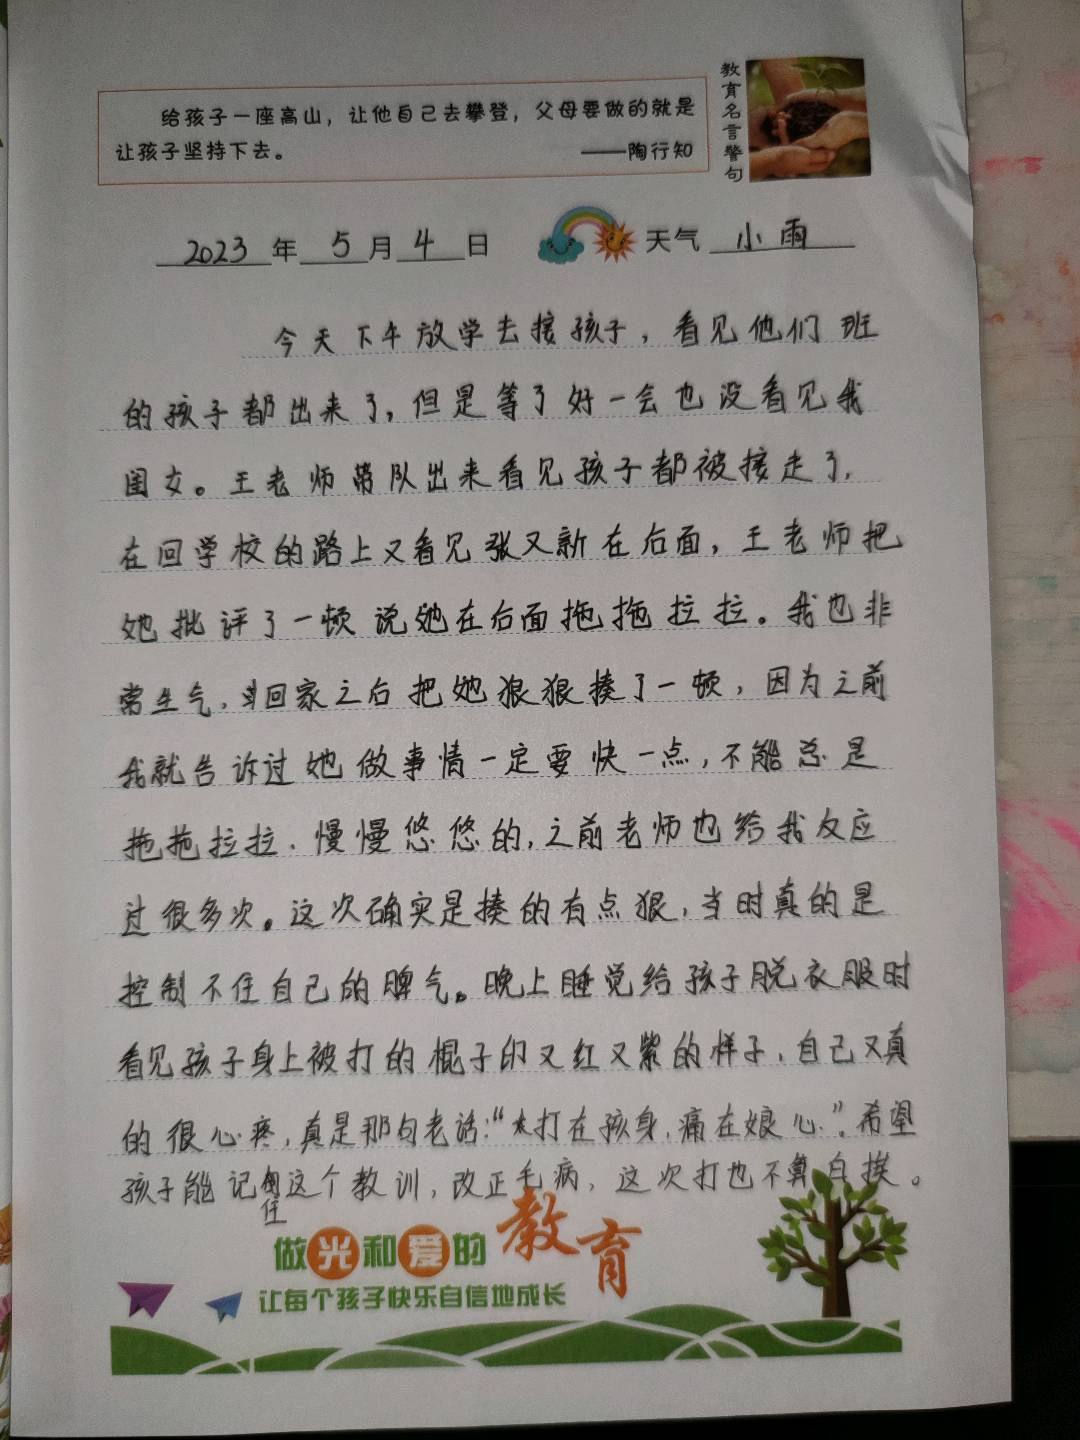 给孩子一座高山，让他自己去攀登，父母要做的就是
让孩子坚持下去。 ——陶行知
教育名言警句
2023年5月4日 天气 小雨
今天下午放学去接孩子，看见他们班
的孩子都出来了，但是等了好一会也没看见我
闺女。王老师带队出来看见孩子都被接走了，
在回学校的路上又看见张又新在后面，王老师把
她批评了一顿说她在后面拖拖拉拉。我也非
常生气，回家之后把她狠狠揍了一顿，因为之前
我就告诉过她做事情一定要快一点，不能总是
拖拖拉拉、慢慢悠悠的，之前老师也给我反应
过很多次。这次确实是揍的有点狠，当时真的是
控制不住自己的脾气。晚上睡觉给孩子脱衣服时
看见孩子身上被打的棍子印又红又紫的样子，自己又真
的很心疼，真是那句老话：“打在孩身，痛在娘心”。希望
孩子能记住这个教训，改正毛病，这次打也不算白挨。
做光和爱的教育
让每个孩子快乐自信地成长